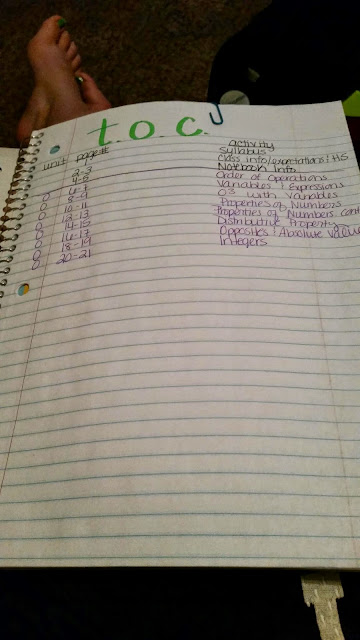 t.o.c.
unit page # activity
1 Syllabus
2-3 Class info/expectations/HS
4-5 Notebook Info
0 6-7 Order of Operations
0 8-9 Variables + Expressions
0 10-11 with Variables
0 12-13 Properties of Numbers
0 14-15 Properties of Numbers cont
0 16-17 Distributive Property
0 18-19 Opposites/Absolute Value
0 20-21 Integers